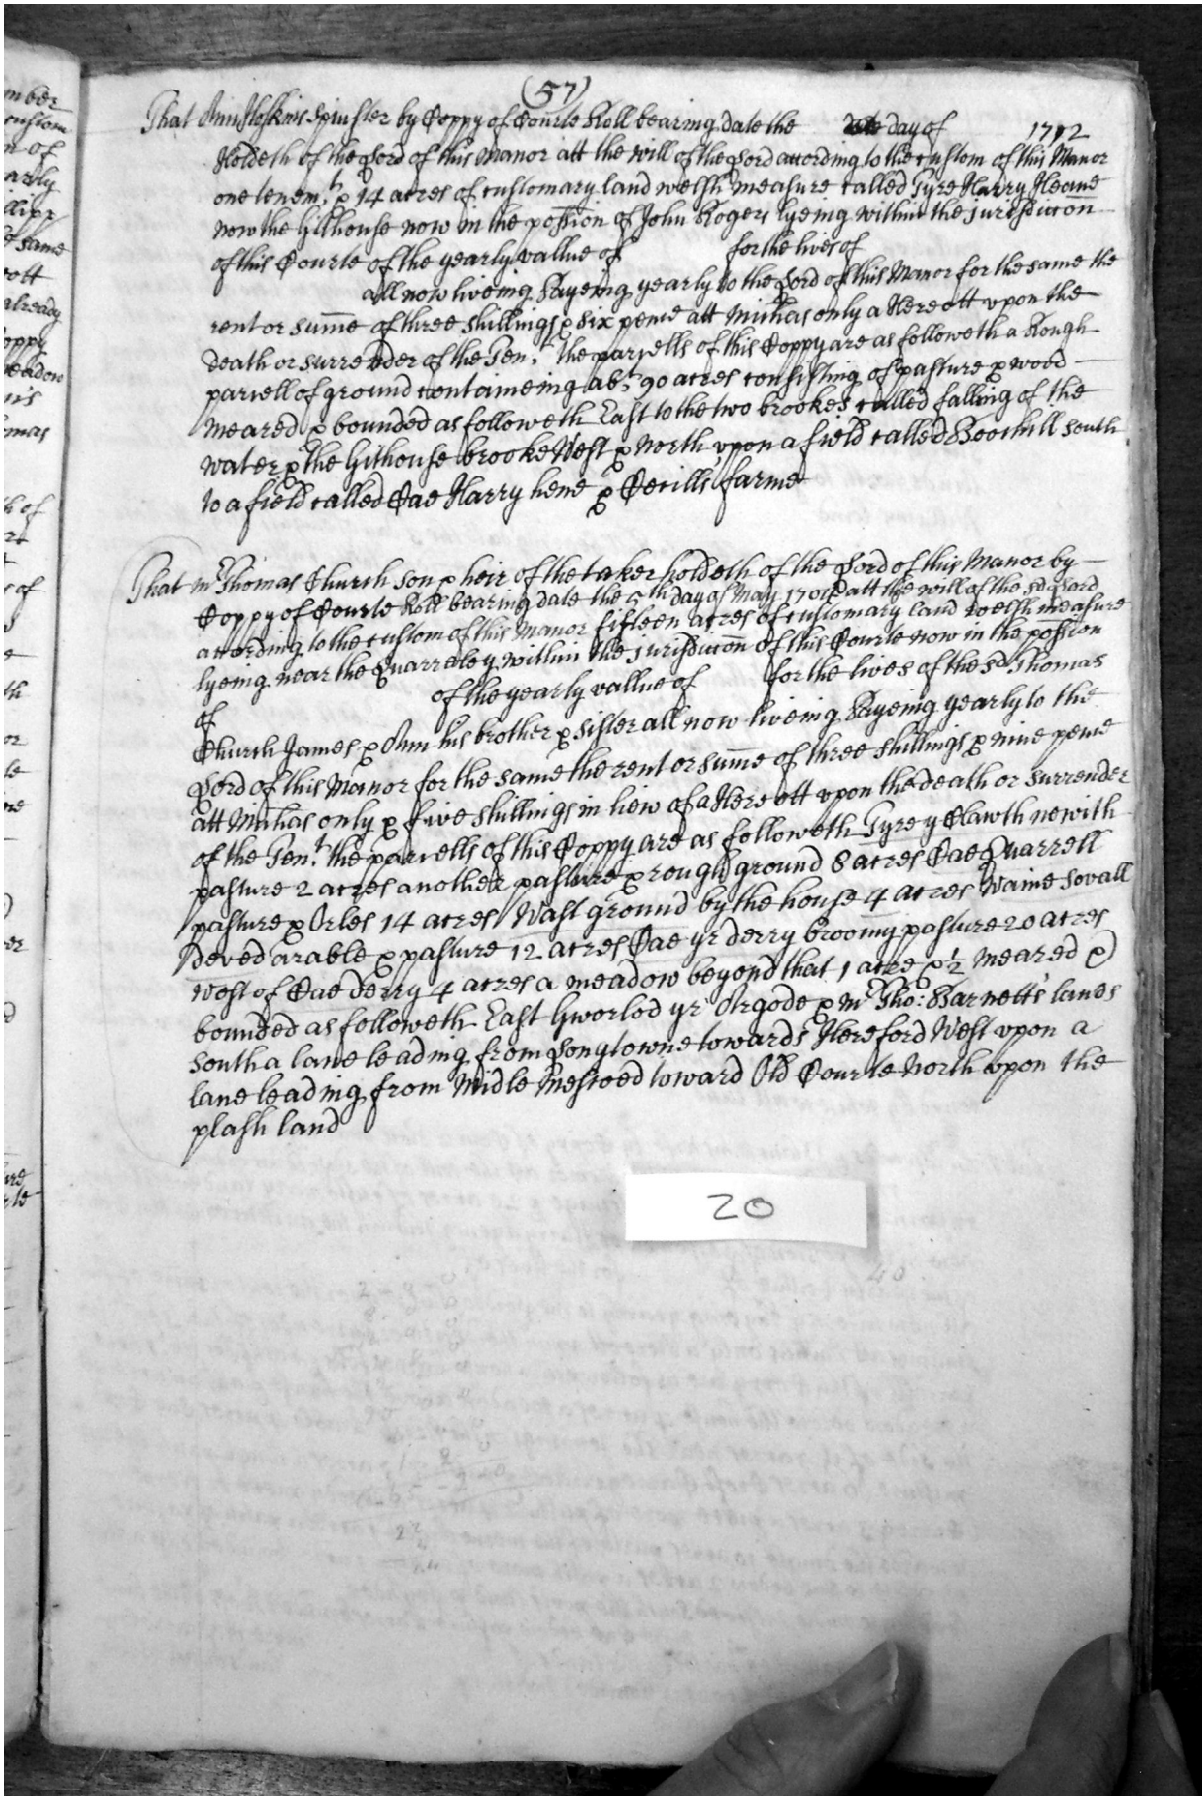 (57)
That Ann Hoskins Spinster by Coppy of Courte Roll bearing date the day of 1712
Holdeth of the Lord of this Manor att the will of the Lord according to the custom of this Manor
one tenemt. & 14 acres of customary land welsh measure called Tyre Harry Heane
now the Gilhouse now in the possion of John Rogers lyeing within the jurisdiccon
of this Courte of the yearly vallue of for the lives of
all now liveing Payeing yearly to the Lord of this Manor for the same the
rent or summe of three shillings & six pence att Michas only a Hereott upon the
death or surrender of the Tent. the parcells of this Coppy are as followeth a Rough
parcell of ground containeing abt. 90 acres consisting of pasture & wood
meared & bounded as followeth East to the two brookes called falling of the
water & the Gilhouse brooke West & North upon a field called Boorhill South
to a field called Cae Harry hene & Cecills farme
That Mr Thomas Church son & heir of the taker holdeth of the Lord of this Manor by
Coppy of Courte Roll bearing date the 5th day of May att the will of the sd Lord
according to the custom of this Manor fifteen acres of customary land welsh measure
lyeing near the Quarreley within the Jurisdiccon of this Courte now in the possion
of of the yearly vallue of for the lives of the sd Thomas
Church James & Ann his brother & sister all now liveing Payeing yearly to the
Lord of this Manor for the same the rent or summe of three shillings & nine pence
att Michas only & five shillings in liew of a Hereott upon the death or surrender
of the Tent. the parcells of this Coppy are as followeth Tyre y Clawth newith
pasture 2 acres another pasture & rough ground 8 acres Cae Quarrell
pasture & Orles 14 acres Wast ground by the house 4 acres Waine Sovall
deved arable & pasture 12 acres Cae yr derry broomy pasture 20 acres
West of Cae derry 4 acres a meadow beyond that 1 acre & ½ Meared &
bounded as followeth East Gworlod yr Argode & Mr Tho: Barnetts lands
South a lane leading from Longtowne towards Hereford West upon a
lane leading from Midle Mescoed toward Old Courte North upon the
plash land
20